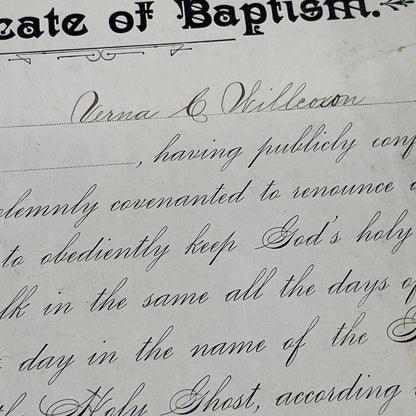 cate of Baptism.
Verna C Willcoxon
, having publicly conf
olemnly covenanted to renounce
to obediently keep God's holy
lk in the same all the days of
day in the name of the
Holy Ghost, according